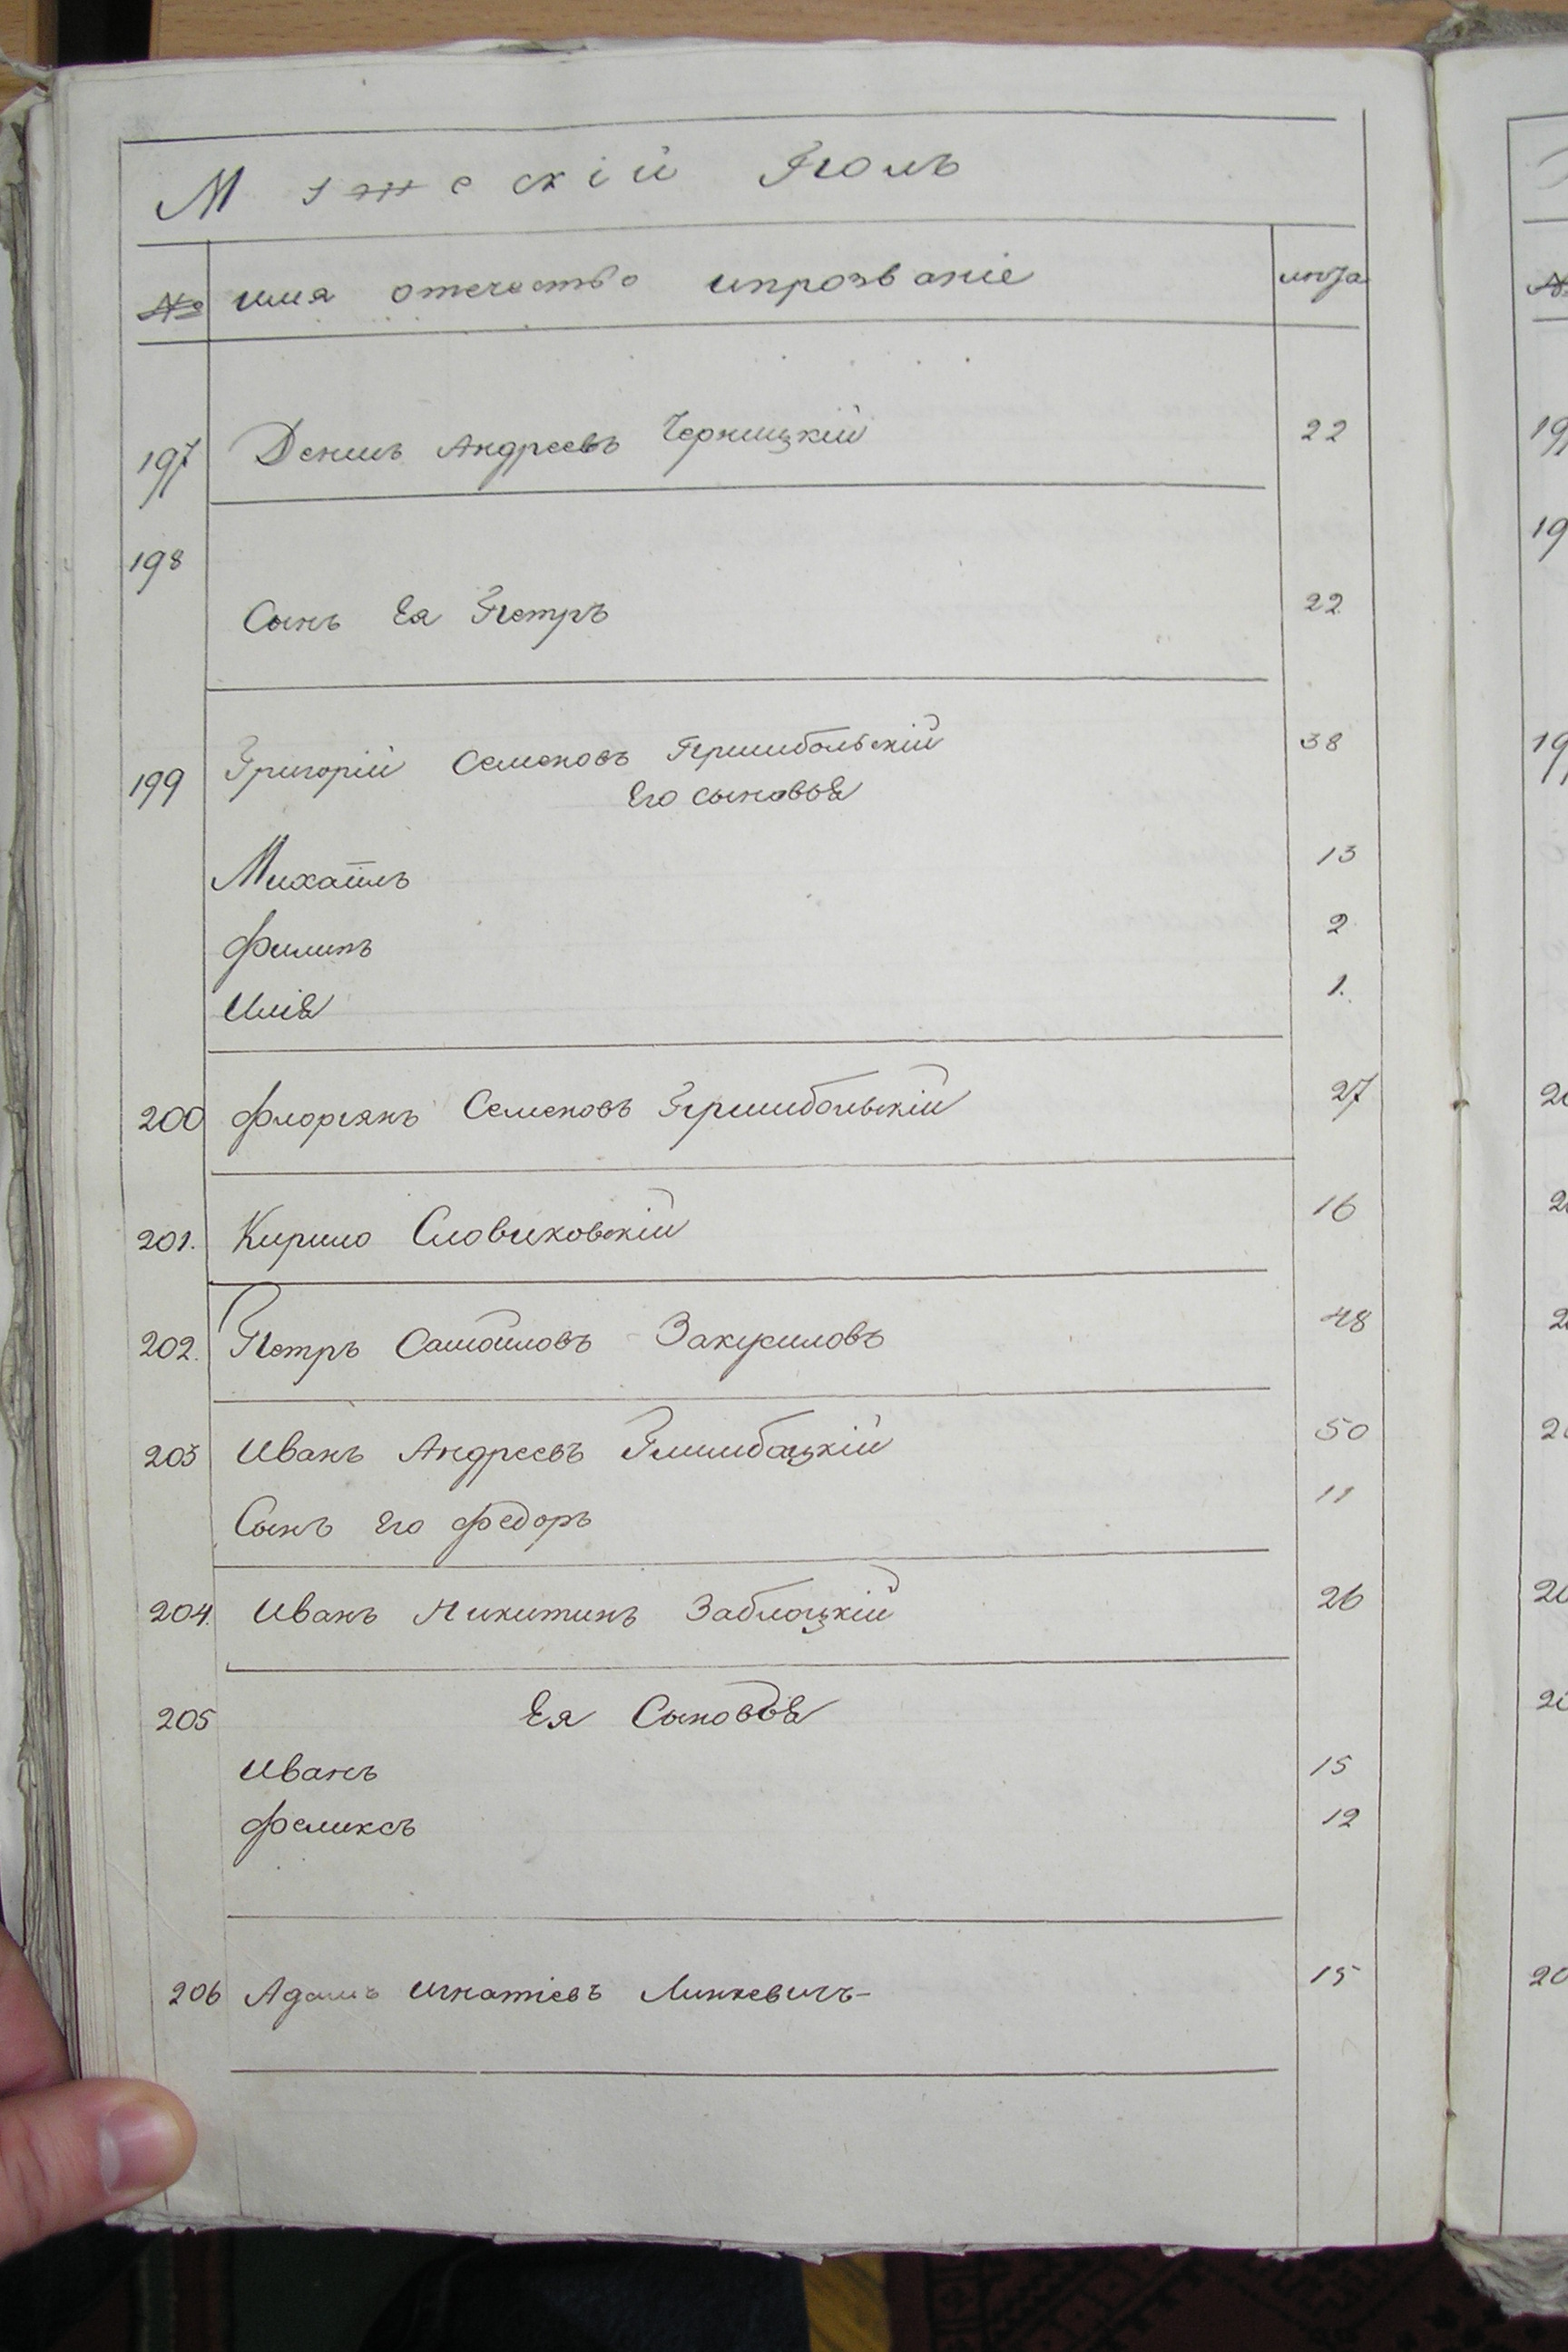 Мужескій Полъ
№ имя отечество ипрозваніе лѣта
197 Денисъ Андреевъ Черницкій 22
198
Сынъ Ея Петръ 22
199 Григорій Семеновъ Пршибольскій 38
Его сыновья
Михаилъ 13
Филипъ 2
Илія 1.
200 Флоріянъ Семеновъ Пршибольскій 27
201. Кирило Словиковскій 16
202. Петръ Самоиловъ 48
203 Иванъ Андреевъ 50
Сынъ Его Федоръ 11
204. Иванъ Никитинъ Заблоцкій 26
205 Ея Сыновья
Иванъ 15
Феликсъ 12
206 Адамъ Игнатіевъ Линкевичъ 15